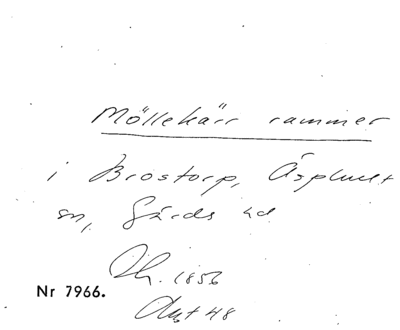 Möllekärr rammer
i Brostorp, Äsphult
sn, Gärds hd
1856
Nr 7966.
48